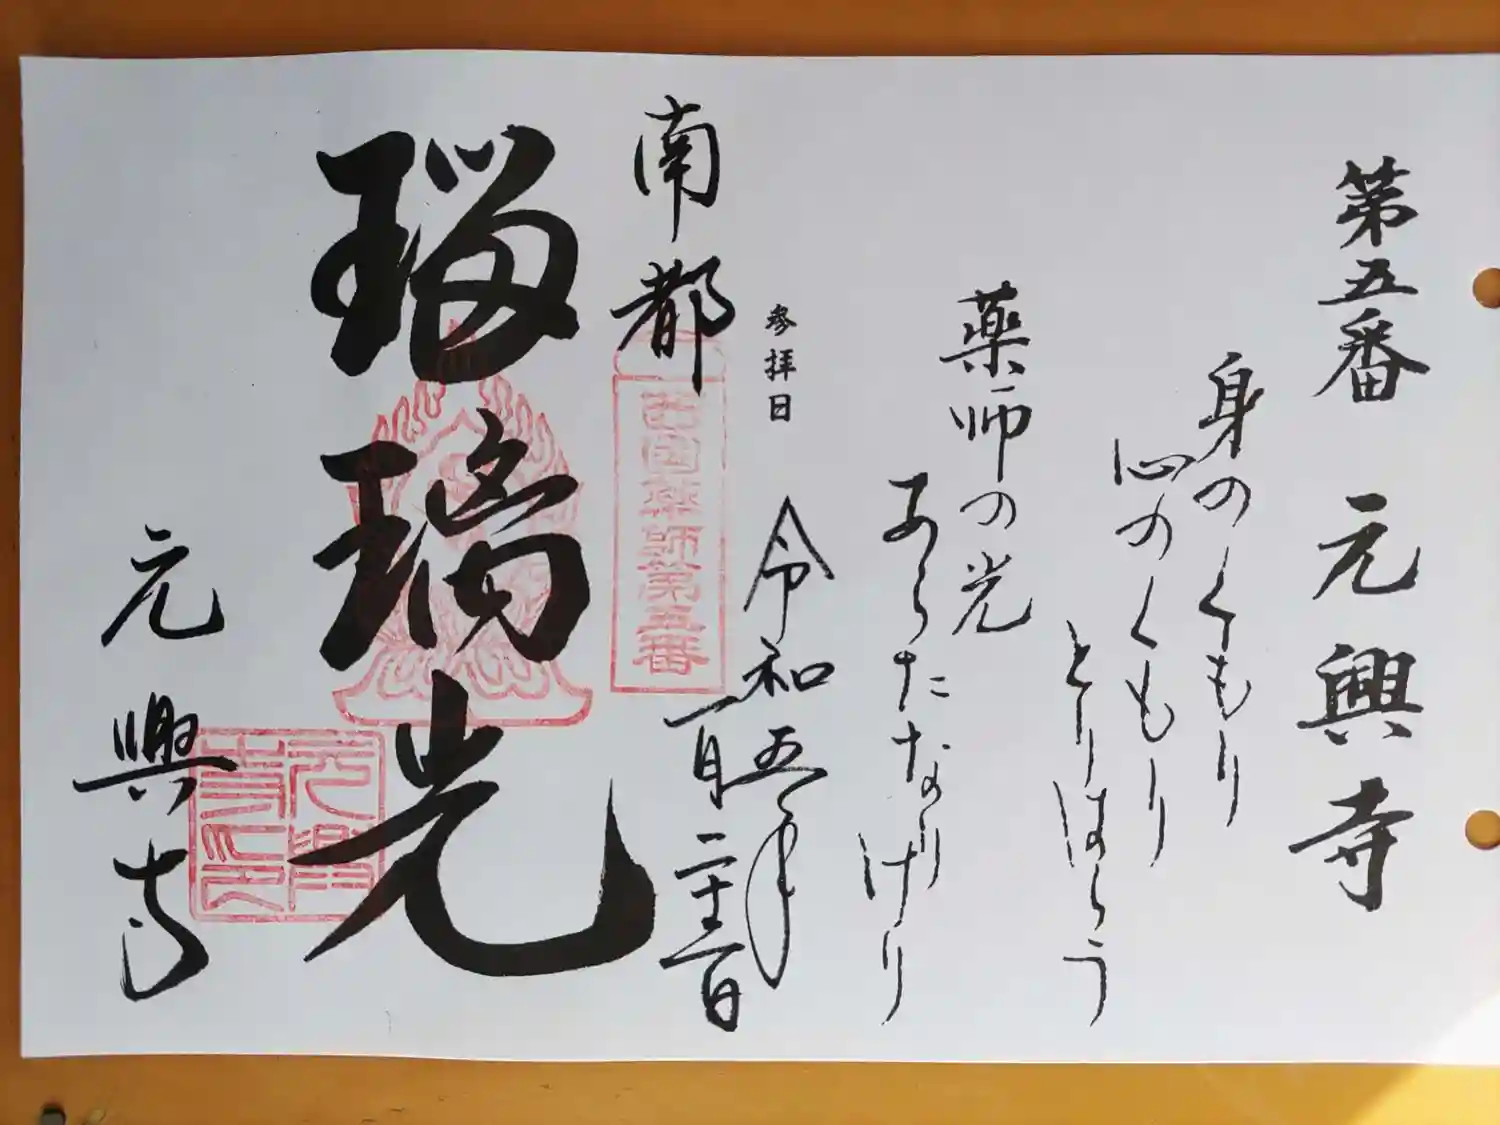 第五番 元興寺
身のくもり
心のくもり
とりはらう
薬師の光
あらたなりけり
参拝日 令和五年
一月
南都
西国薬師第五番
瑠璃光
元興寺
元興寺之印